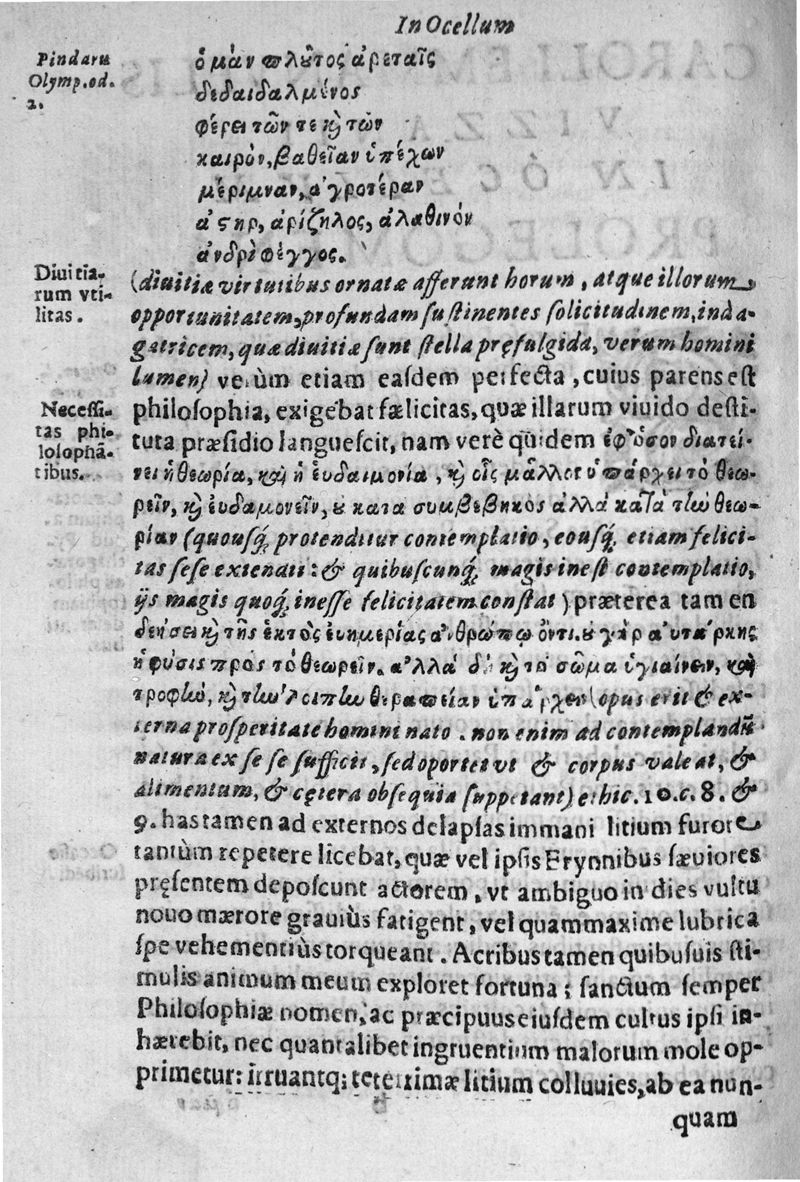 In Ocellum
Pindaru
Olymp. od.
2.
ὁ μὰν πλȣ̃τος ἀρεταῖς
δεδαιδαλμένος
φέρει τῶν τε κ̀ τῶν
καιρὸν, βαθεῖαν ὑπέχων
μέριμναν, ἀγροτέραν
ἀστὴρ, ἀρίζηλος, ἀλαθινὸν
ἀνδρὶ φέγγος.
Diuitia-
rum vti-
litas.
(diuitiæ virtutibus ornatæ afferunt horum, atque illorum
opportunitatem, profundam ſuſtinentes ſolicitudinem, inda-
gatricem, quæ diuitiæ ſunt ſtella pręfulgida, verum homini
lumen) verùm etiam eaſdem perfecta, cuius parens eſt
Neceſſi-
tas phi-
loſophā-
tibus.
philoſophia, exigebat fælicitas, quæ illarum viuido deſti-
tuta præſidio langueſcit, nam verè quidem ἐφ' ὅσον διατεί-
νει ἡ θεωρία, καὶ ἡ ἐυδαιμονία, κ̀ οἷς μᾶλλον ὑπάρχει τὸ θεω-
ρεῖν, κ̀ ἐυδαμονεῖν, ȣ κατα συμβεβηκὸς ἀλλὰ κατὰ τὼ θεω-
ρίαν (quouſq́; protenditur contemplatio, eouſq́; etiam felici-
tas ſeſe extendit: & quibuſcunq́; magis ineſt contemplatio,
ijs magis quoq́; ineſſe felicitatem conſtat) præterea tamen
δεήσει κ̀ τῆς ἐκτὸς ἐυημερίας ἀνθρώπῳ ὄντι. ȣ γὰρ ἀυτάρκης
ἡ φύσις πρὸς τὸ θεωρεῖν. ἀλλὰ δεῖ κ̀ τὸ σῶμα ὑγιαίνειν, καὶ
τροφὼ, κ̀ τὼ λοιπὼ θεραπείαν ὑπάρχειν (opus erit & ex-
terna proſperitate homini nato. non enim ad contemplandū
natura ex ſe ſe ſufficit, ſed oportet vt & corpus valeat, &
alimentum, & cętera obſequia ſuppetant) ethic. 10. c. 8. &
9. has tamen ad externos delapſas immani litium furore
tantùm repetere licebat, quæ vel ipſis Erynnibus ſæuiores
pręſentem depoſcunt actorem, vt ambiguo in dies vultu
nouo mærore grauiùs fatigent, vel quammaxime lubrica
ſpe vehementiùs torqueant. Acribus tamen quibuſuis ſti-
mulis animum meum exploret fortuna; ſanctum ſemper
Philoſophiæ nomen, ac præcipuus eiuſdem cultus ipſi in-
hærebit, nec quantalibet ingruentium malorum mole op-
primetur: irruantq; teterrimæ litium colluuies, ab ea nun-
quam